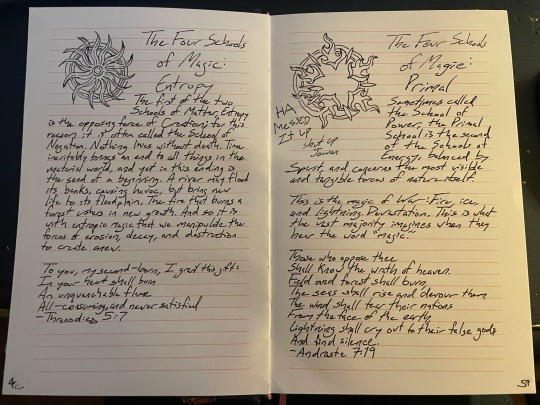 The Four Schools
of Magic:
Entropy
The first of the two
Schools of Matter, Entropy
is the opposing force of Creation; for this
reason it is often called the School of
Negation. Nothing lives without death. Time
inevitably brings an end to all things in the
material world, and yet in this ending is
the seed of a beginning. A river may flood
its banks, causing havoc, but bring new
life to its floodplain. The fire that burns a
forest ushers in new growth. And so it is
with entropic magic that we manipulate the
forces of erosion, decay, and destruction
to create anew.
To you, my second-born, I grant this gift:
In your heart shall burn
An unquenchable flame
All-consuming, and never satisfied
-Threnodies 5:7
The Four Schools
of Magic:
Primal
Sometimes called
the School of
Power, the Primal
School is the second
of the Schools of
Energy, balanced by
Spirit, and concerns the most visible
and tangible forces of nature itself.
HA
MESSED
IT UP
Shut up
This is the magic of War: Fire, ice,
and lightning. Devastation. This is what
the vast majority imagines when they
hear the word "magic."
Those who oppose thee
Shall know the wrath of heaven.
Field and forest shall burn,
The seas shall rise and devour them,
The wind shall tear their nations
From the face of the earth,
Lightning shall cry out to their false gods
And find silence.
-Andraste 7:19